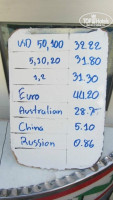 TOP HOTELS
USD 50,100 32.22
5,10,20 31.80
1,2 31.30
Euro 44.20
Australian 28.7
China 5.10
Russion 0.86